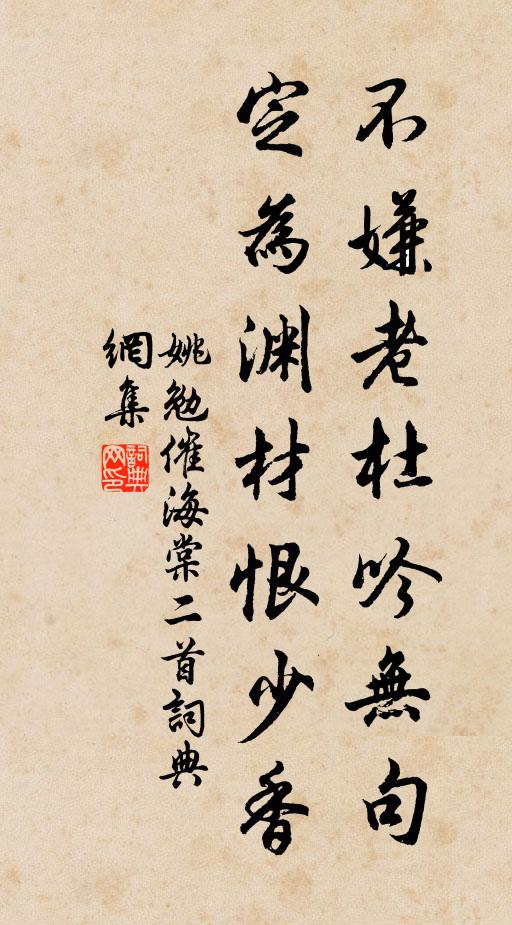 不嫌老杜吟無句
定為淵材恨少香
姚勉催海棠二首詞典
網集
詞典
网印